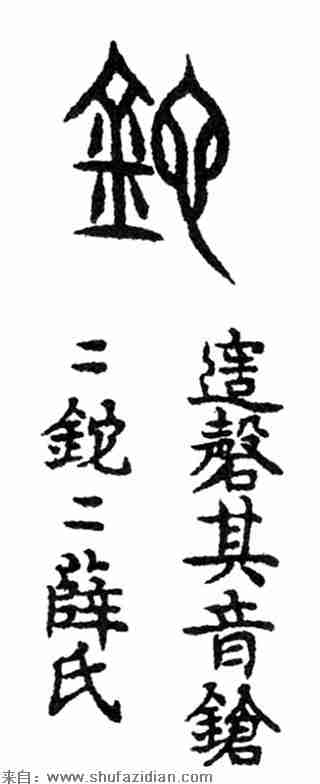 鉈
磬其音鎗
二鉈二薛氏
来自: www.shufazidian.com